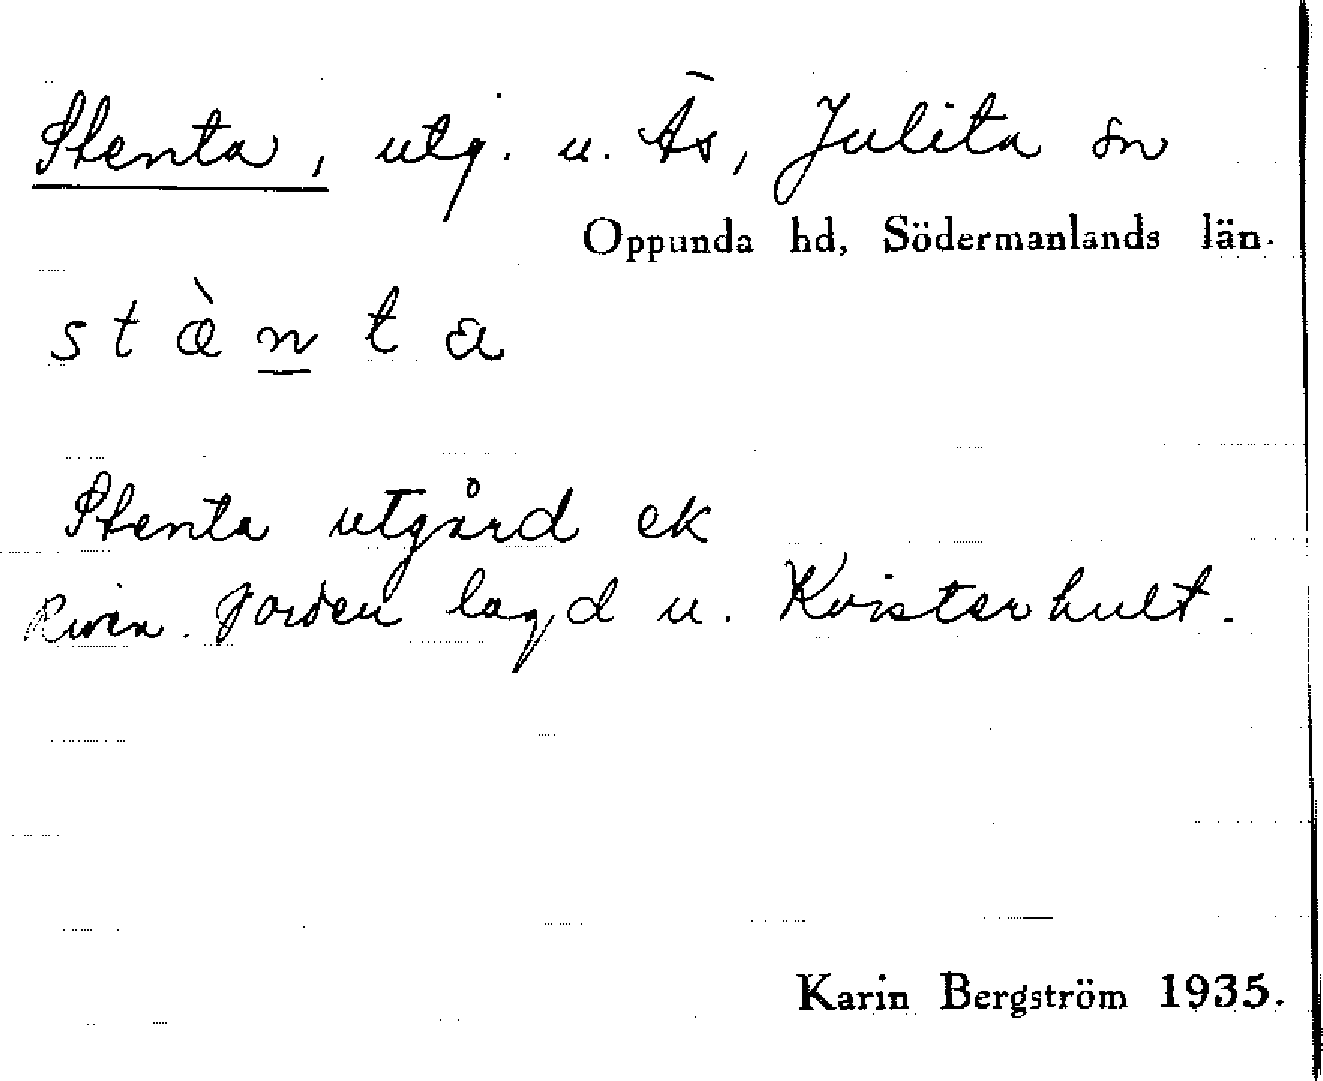 Stenta, utg. u. Äs, Julita sn
Oppunda hd, Södermanlands län.
stæ̀n̲ta
Stenta utgård ek
Riven. Jorden lagd u. Kvisterhult.
Karin Bergström 1935.